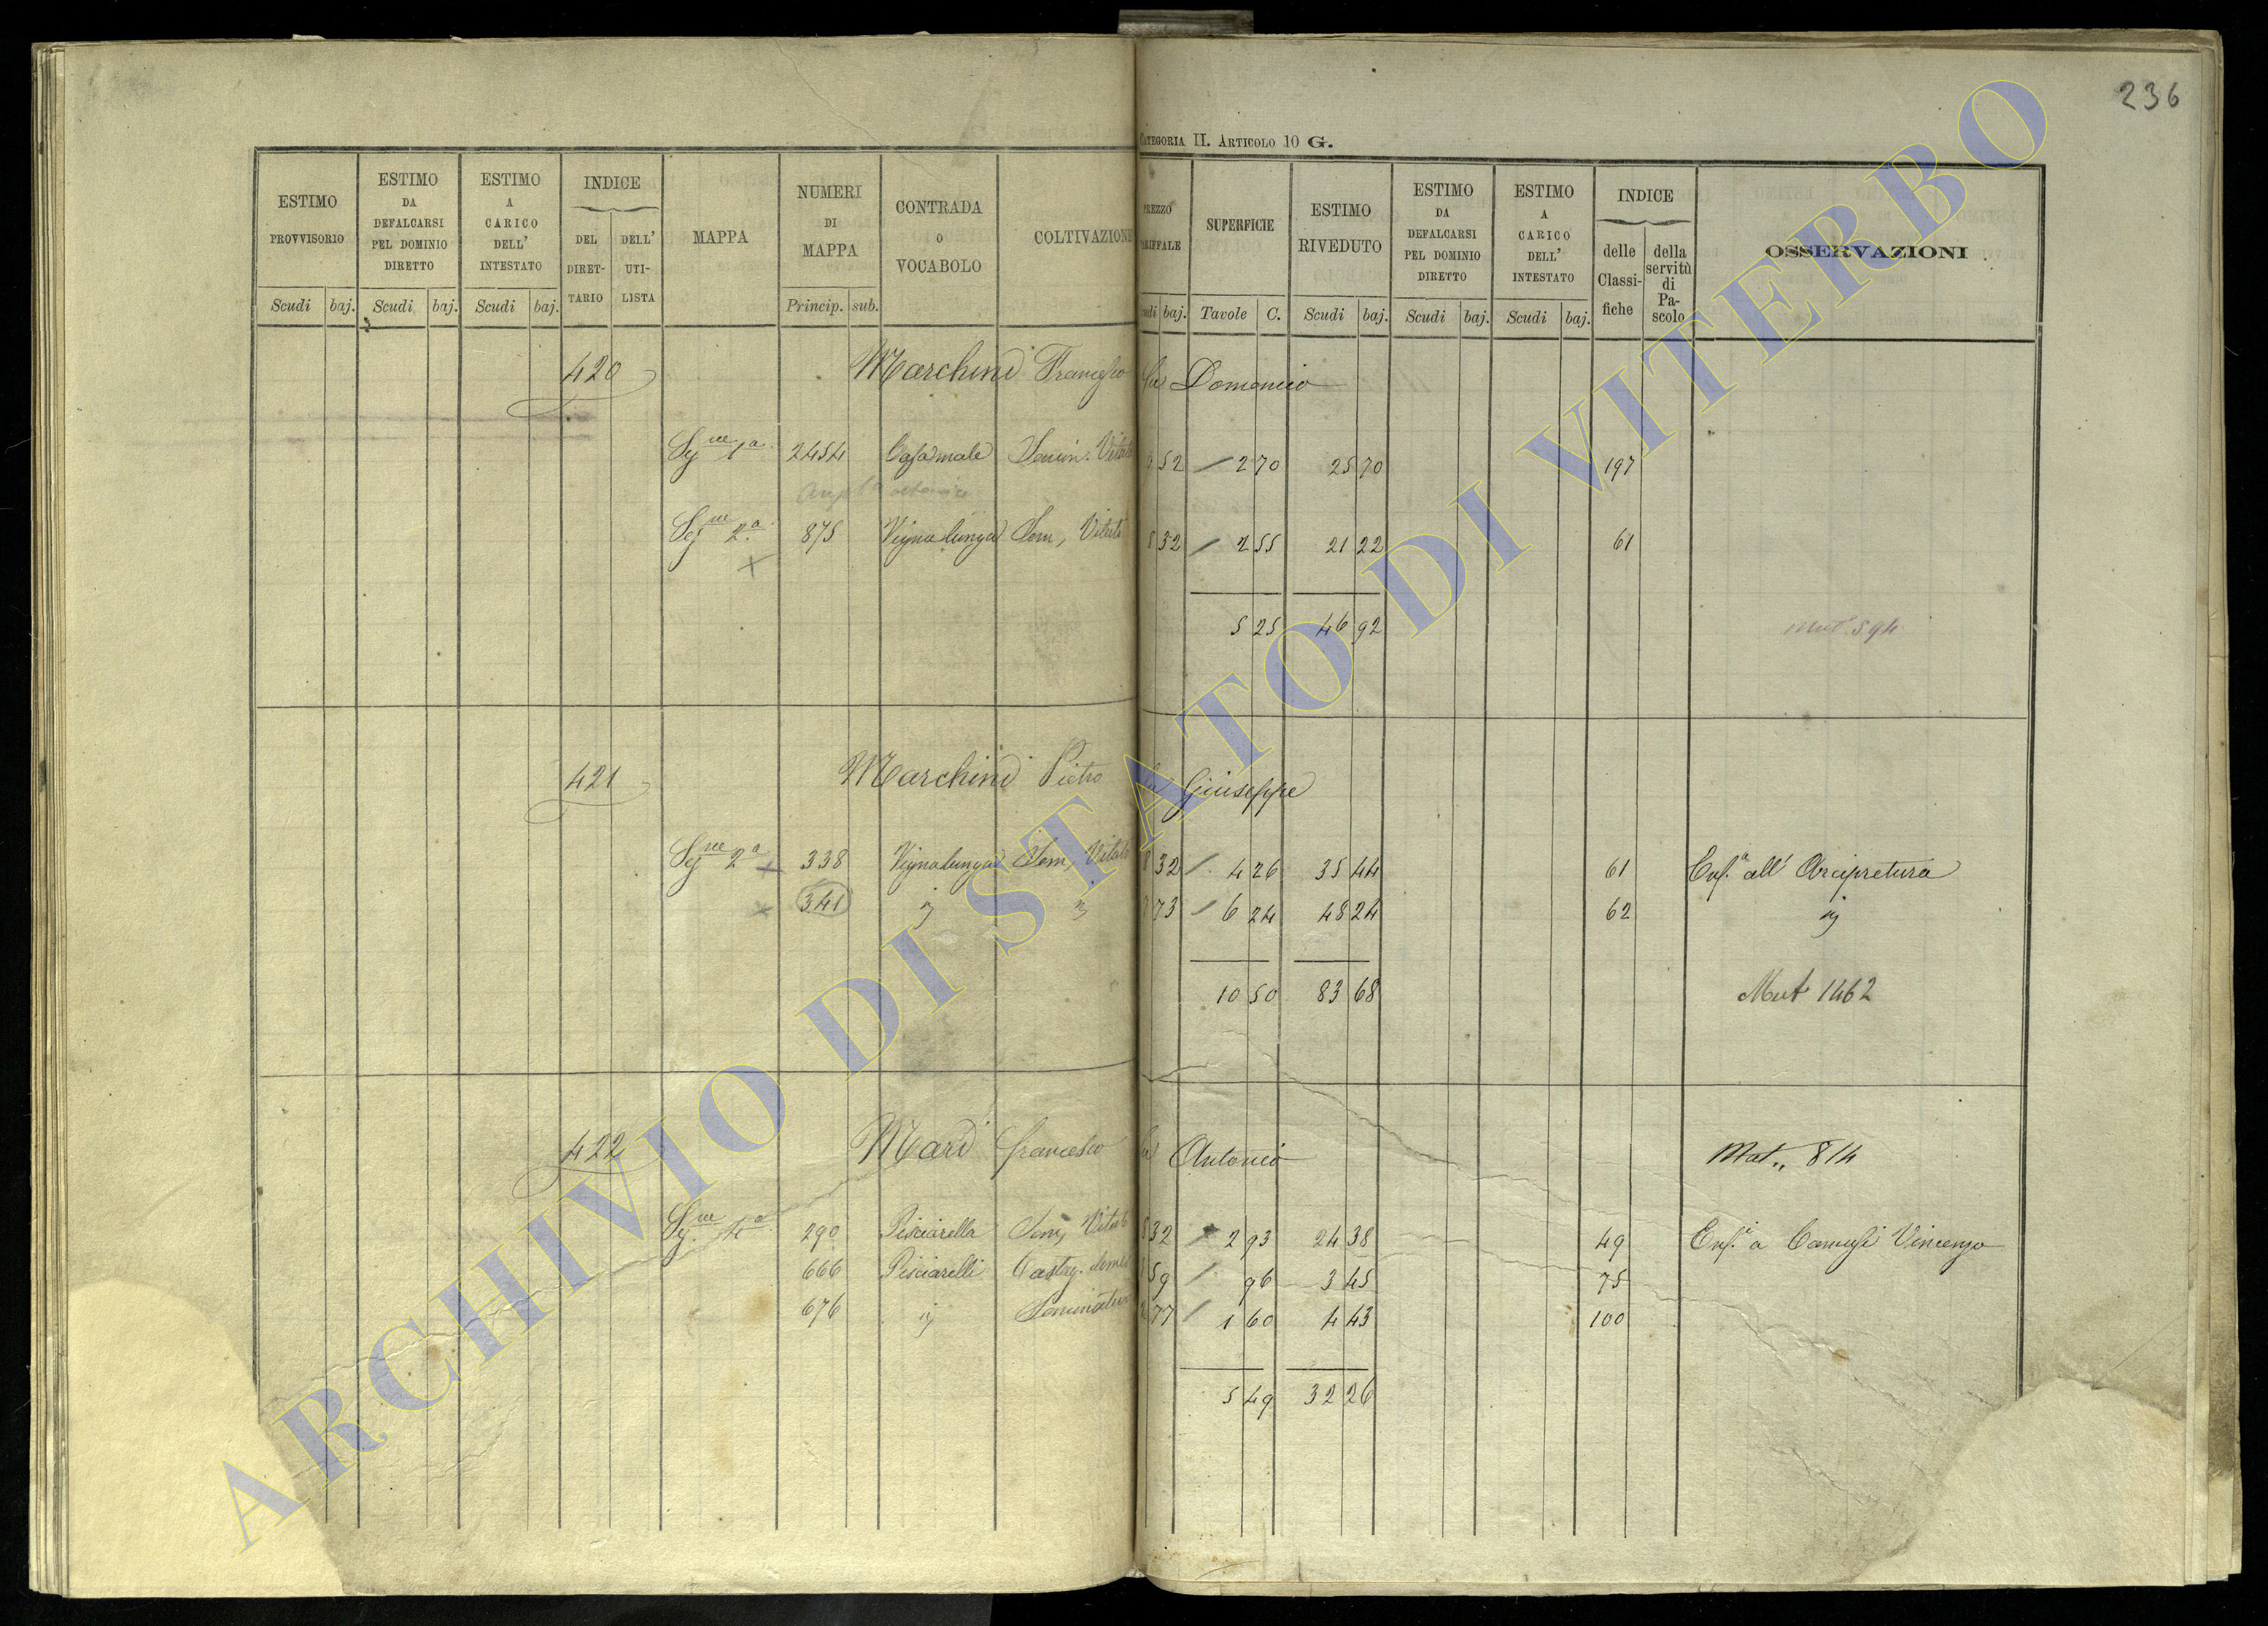 236
CATEGORIA II. ARTICOLO 10 G.
ESTIMO PROVVISORIO
ESTIMO DA DEFALCARSI PEL DOMINIO DIRETTO
ESTIMO A CARICO DELL' INTESTATO
INDICE
DEL DIRET-TARIO
DELL' UTI-LISTA
MAPPA
NUMERI DI MAPPA
CONTRADA O VOCABOLO
COLTIVAZIONE
PREZZO TARIFFALE
SUPERFICIE
ESTIMO RIVEDUTO
ESTIMO DA DEFALCARSI PEL DOMINIO DIRETTO
ESTIMO A CARICO DELL' INTESTATO
INDICE
delle Classi-fiche
della servitù di Pa-scolo
OSSERVAZIONI
Scudi baj. Scudi baj. Scudi baj. Princip. sub. baj. Tavole C. Scudi baj. Scudi baj. Scudi baj.
420 Marchini Francesco fu Domenico
Sez.ne 1a 2454 52 2 70 25 70 197
Sez.ne 2a 875 Vigna lunga Sem, Vitato 8 32 2 55 21 22 61
5 25 46 92 Mut. 594
421 Marchini Pietro fu Giuseppe
Sez.ne 2a 338 Vignalunga Sem, Vitato 8 32 4 26 35 44 61 Enf.a all' Arcipretura
341 ij ij 7 73 6 24 48 24 62 ij
10 50 83 68 Mut 1462
422 Mari Francesco fu Antonio Mat. 814
Sez.ne 290 Pisciarella Sem, Vitato 8 32 2 93 24 38 49 Enf.a a Vincenzo
666 Pisciarelli 59 96 3 45 75
676 ij Seminativo 2 77 1 60 4 43 100
5 49 32 26
ARCHIVIO DI STATO DI VITERBO